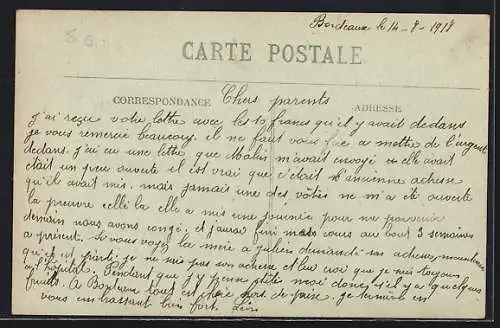 S G
Bordeaux le 14-8-1918
CARTE POSTALE
CORRESPONDANCE
ADRESSE
Chers parents
J'ai reçu votre lettre avec les 10 francs qu'il y avait dedans
je vous remercie beaucoup. il ne faut vous a mettre de l'argent
dedans. J'ai eu une lettre que m'avait envoyé ou elle avait
était un peu ouverte il est vrai que c'était l'ancienne adresse
qu'il avait mis. mais jamais une des vôtres ne m'a été ouverte
la preuve celle la elle a mis une journée pour me parvenir
demain nous avons congé, et j'aurai fini mes cours au bout 3 semaines
a présent. Si vous voyez la mère a Julien demandé son adresse,
qu'il est je ne sais pas son adresse et lui croi que je suis toujours
a l'hôpital. Pendant que j'y pense moi donc s'il y a quelques
fruits. A Bordeaux tout est hors de prix. je termine en
vous embrassant bien fort.